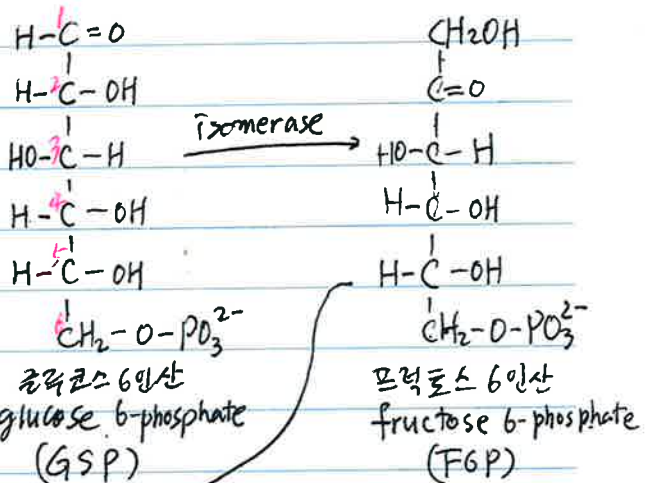 1
H-C=O
H-2C-OH
HO-3C-H
H-4C-OH
H-5C-OH
6CH2-O-PO3 2-
글루코스 6인산
glucose 6-phosphate
(GSP)
isomerase
CH2OH
C=O
HO-C-H
H-C-OH
H-C-OH
CH2-O-PO3 2-
프럭토스 6인산
fructose 6-phosphate
(F6P)